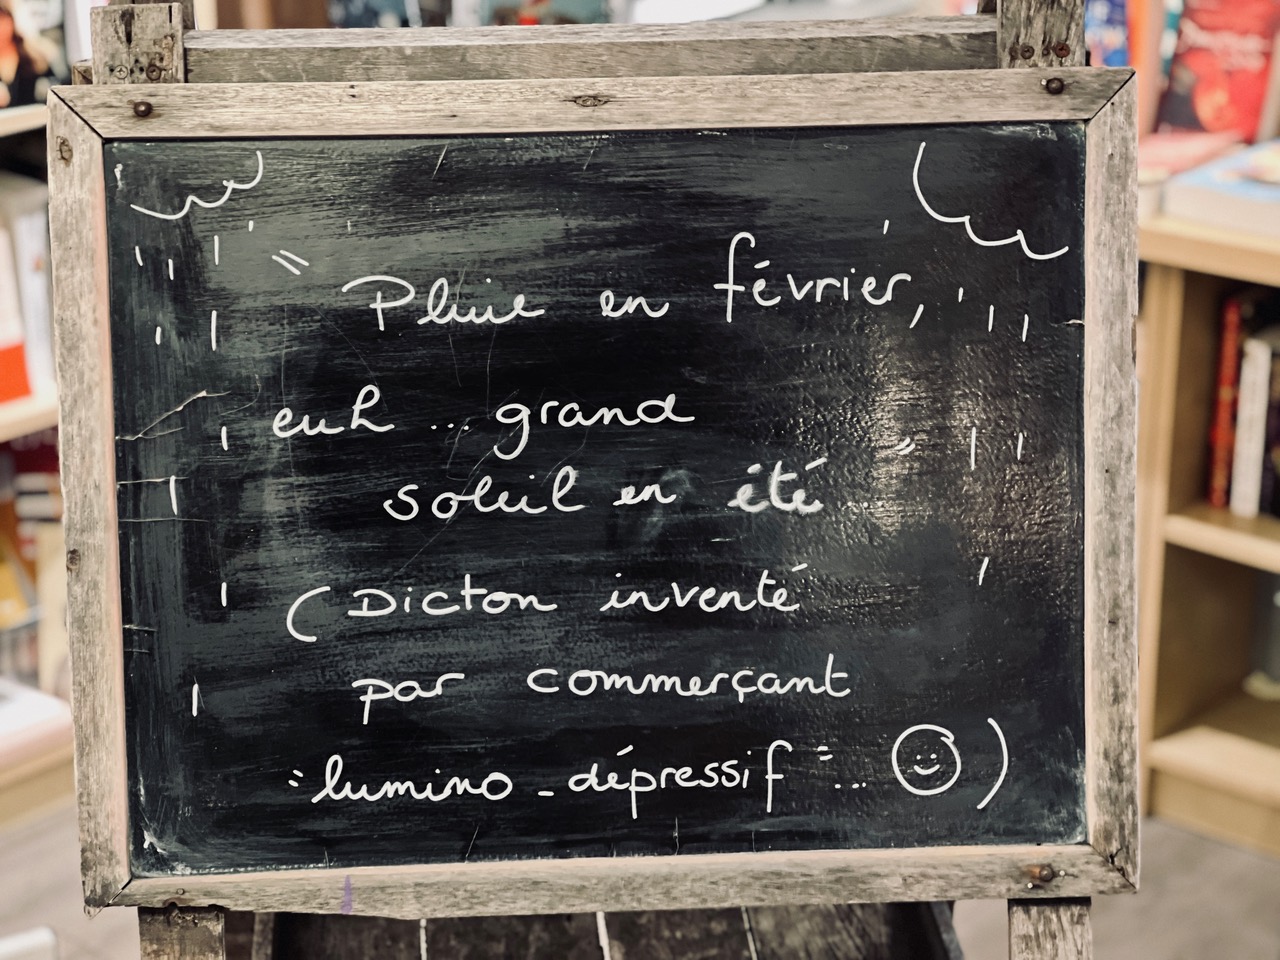 Pluie en février,
euh ... grand
soleil en été
(Dicton inventé
par commerçant
"lumino-dépressif"... )